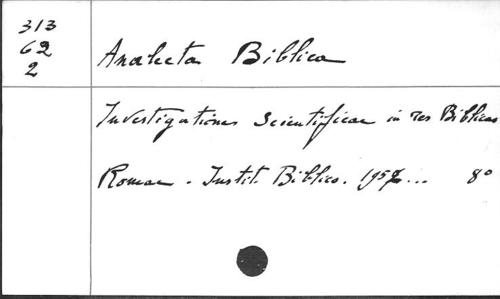 313
62
2
Analecta Biblica
Investigationes Scientificae in res Biblicas
Romae - Instit. Biblico. 1952... 8°